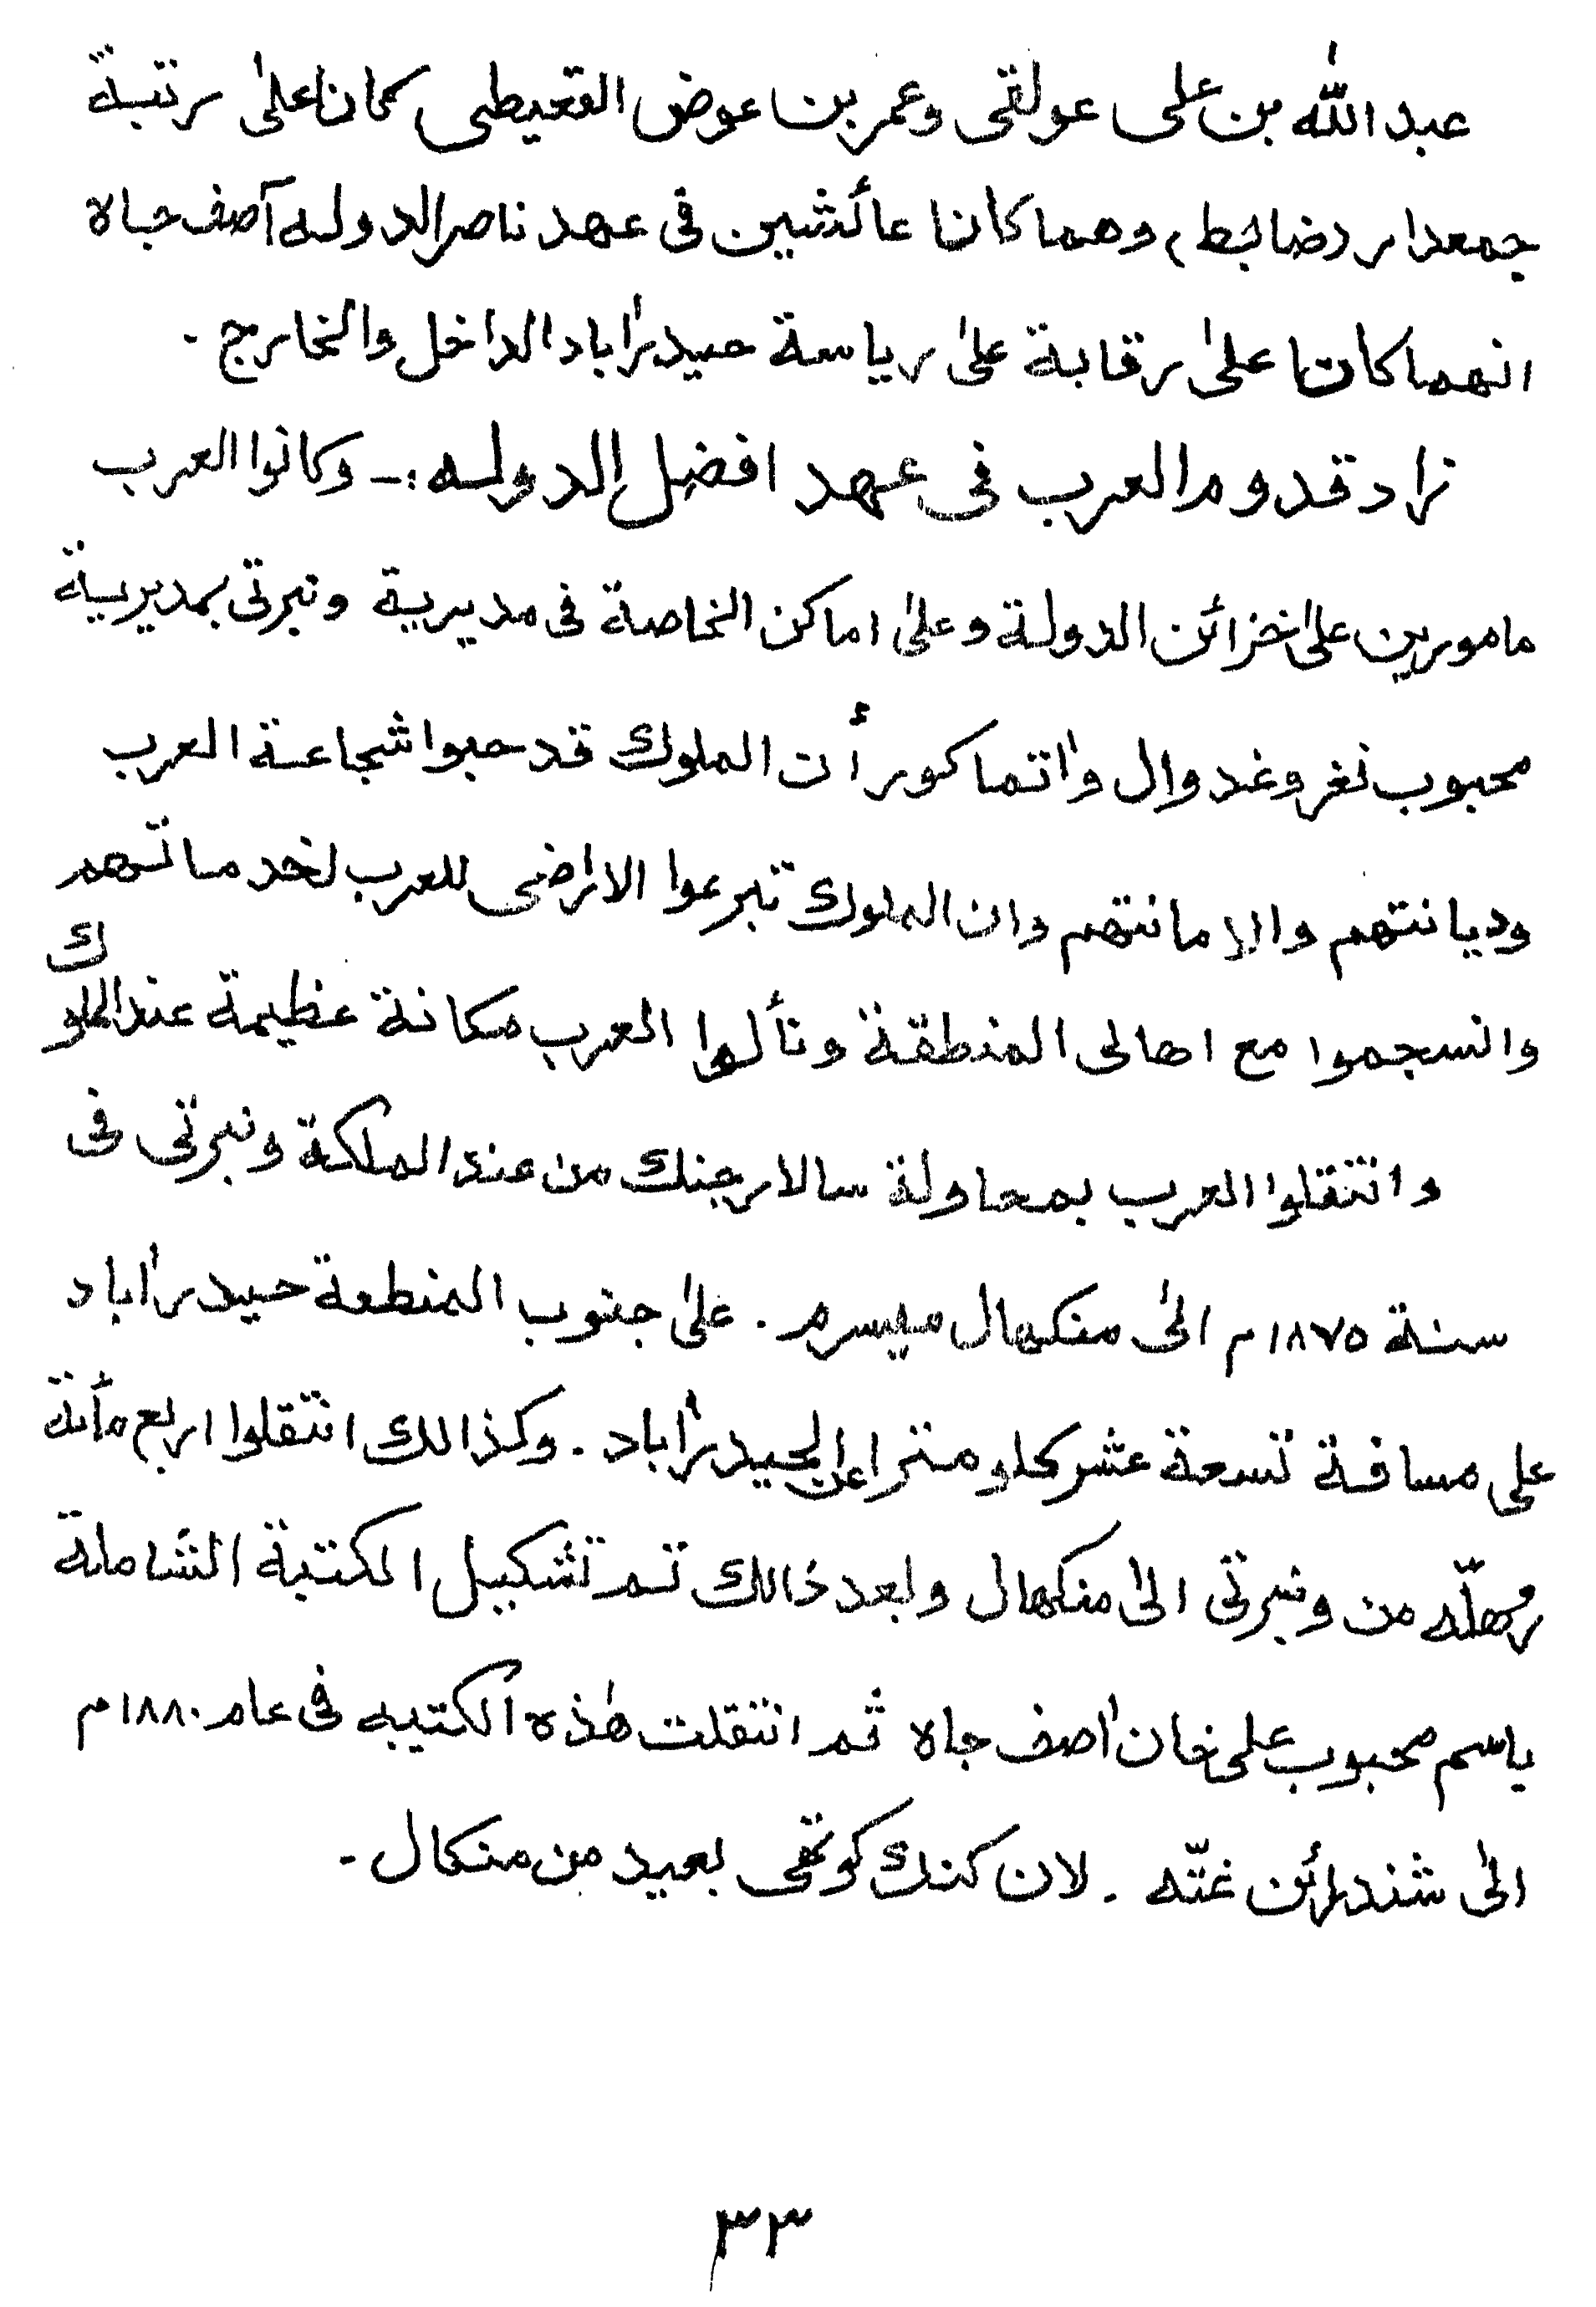 عبد الله بن على عولقى وعمر بن عوض القعيطى كانا على رتبة
جمعدار (ضابط) وهما كانا عائشين فى عهد ناصر الدوله آصف جاه
انهما كانا على رقابة على رياسة حيدراباد الداخل والخارج .
زاد قدوم العرب فى عهد افضل الدوله :ـ وكانوا العرب
مامورين على خزائن الدولة وعلى اماكن الخاصة فى مديرية ونبرتى بمديرية
محبوب نغر وغدوال واتماكور أن الملوك قد حبوا شجاعة العرب
وديانتهم والامانتهم وان الملوك تبرعوا الاراضى للعرب لخدماتهم
وانسجموا مع اهالى المنطقة ونألوا العرب مكانة عظيمة عند الملوك
وانتقلوا العرب بمحاولة سالار جنك من عند الملكة ونبرتى فى
سنة ١٨٧٥م الى منكهال ميسرم . على جنوب المنطعة حيدراباد
على مسافة تسعة عشر كلو مترا عن حيدراباد . وكذالك انتقلوا اربع مأتة
رهلّه من ونبرتى الى منكهال وبعد ذالك تم تشكيل الكتبة الشاملة
باسم محبوب على خان اصف جاه ثم انتقلت هذه الكتيبه فى عام ١٨٨٠م
الى شندرائن غتّه . لان كنك كوتهى بعيد من منكال ـ
٣٣